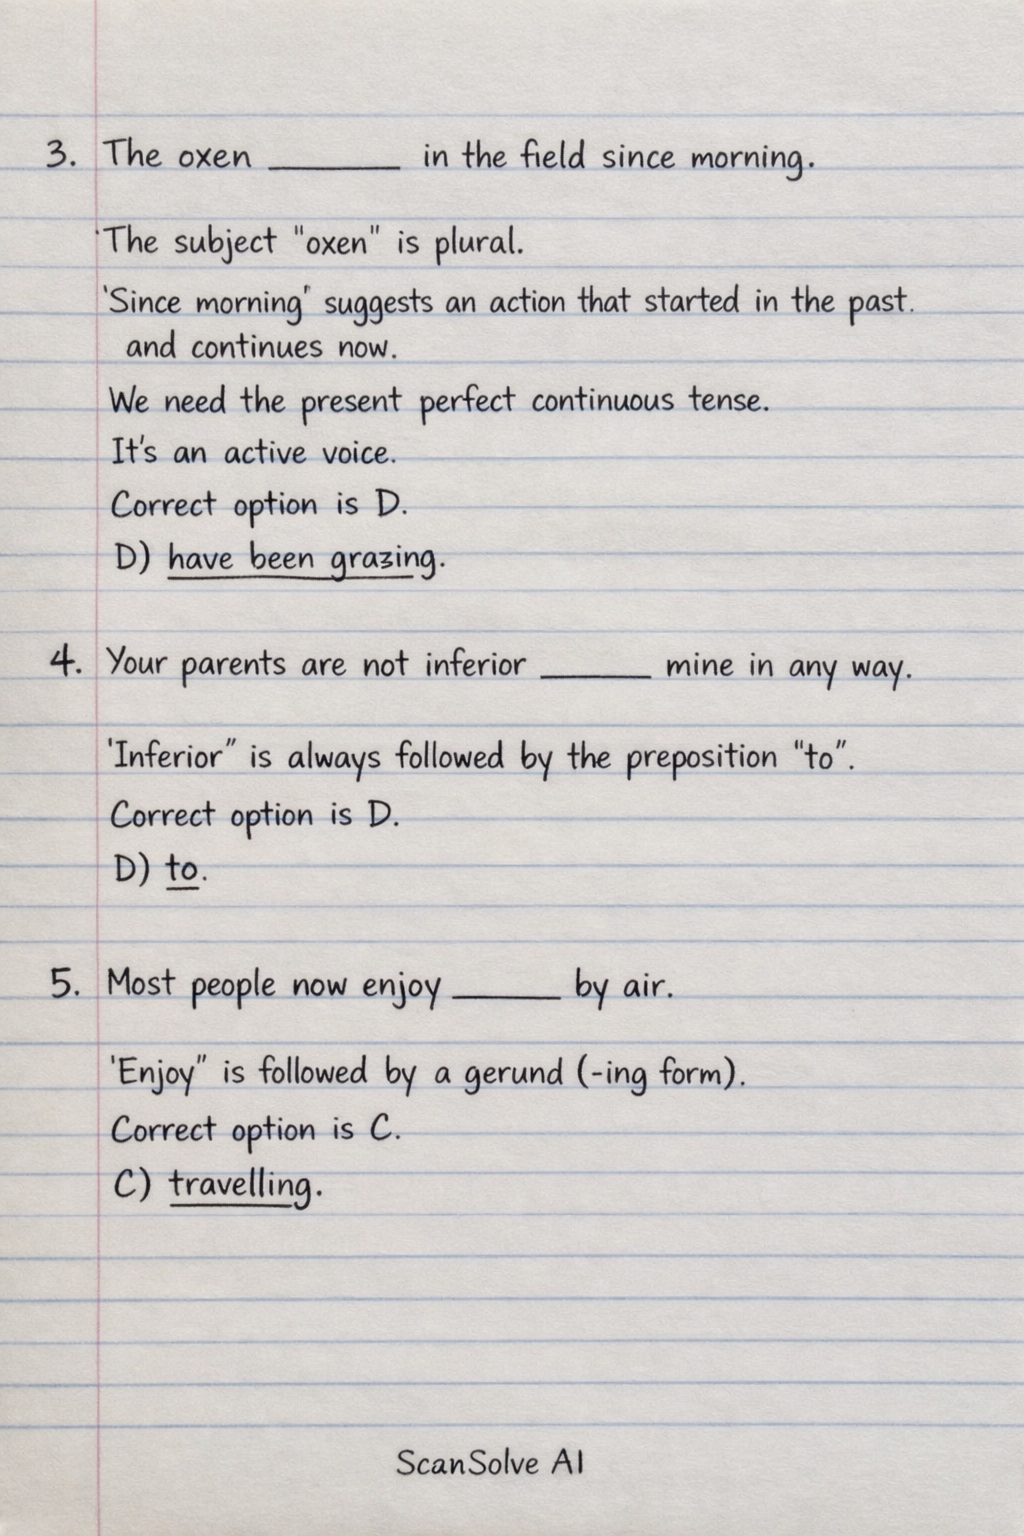 3. The oxen ________ in the field since morning.
'The subject "oxen" is plural.
'Since morning' suggests an action that started in the past.
and continues now.
We need the present perfect continuous tense.
It's an active voice.
Correct option is D.
D) have been grazing.
4. Your parents are not inferior ______ mine in any way.
'Inferior" is always followed by the preposition "to".
Correct option is D.
D) to.
5. Most people now enjoy ______ by air.
'Enjoy" is followed by a gerund (-ing form).
Correct option is C.
C) travelling.
ScanSolve AI